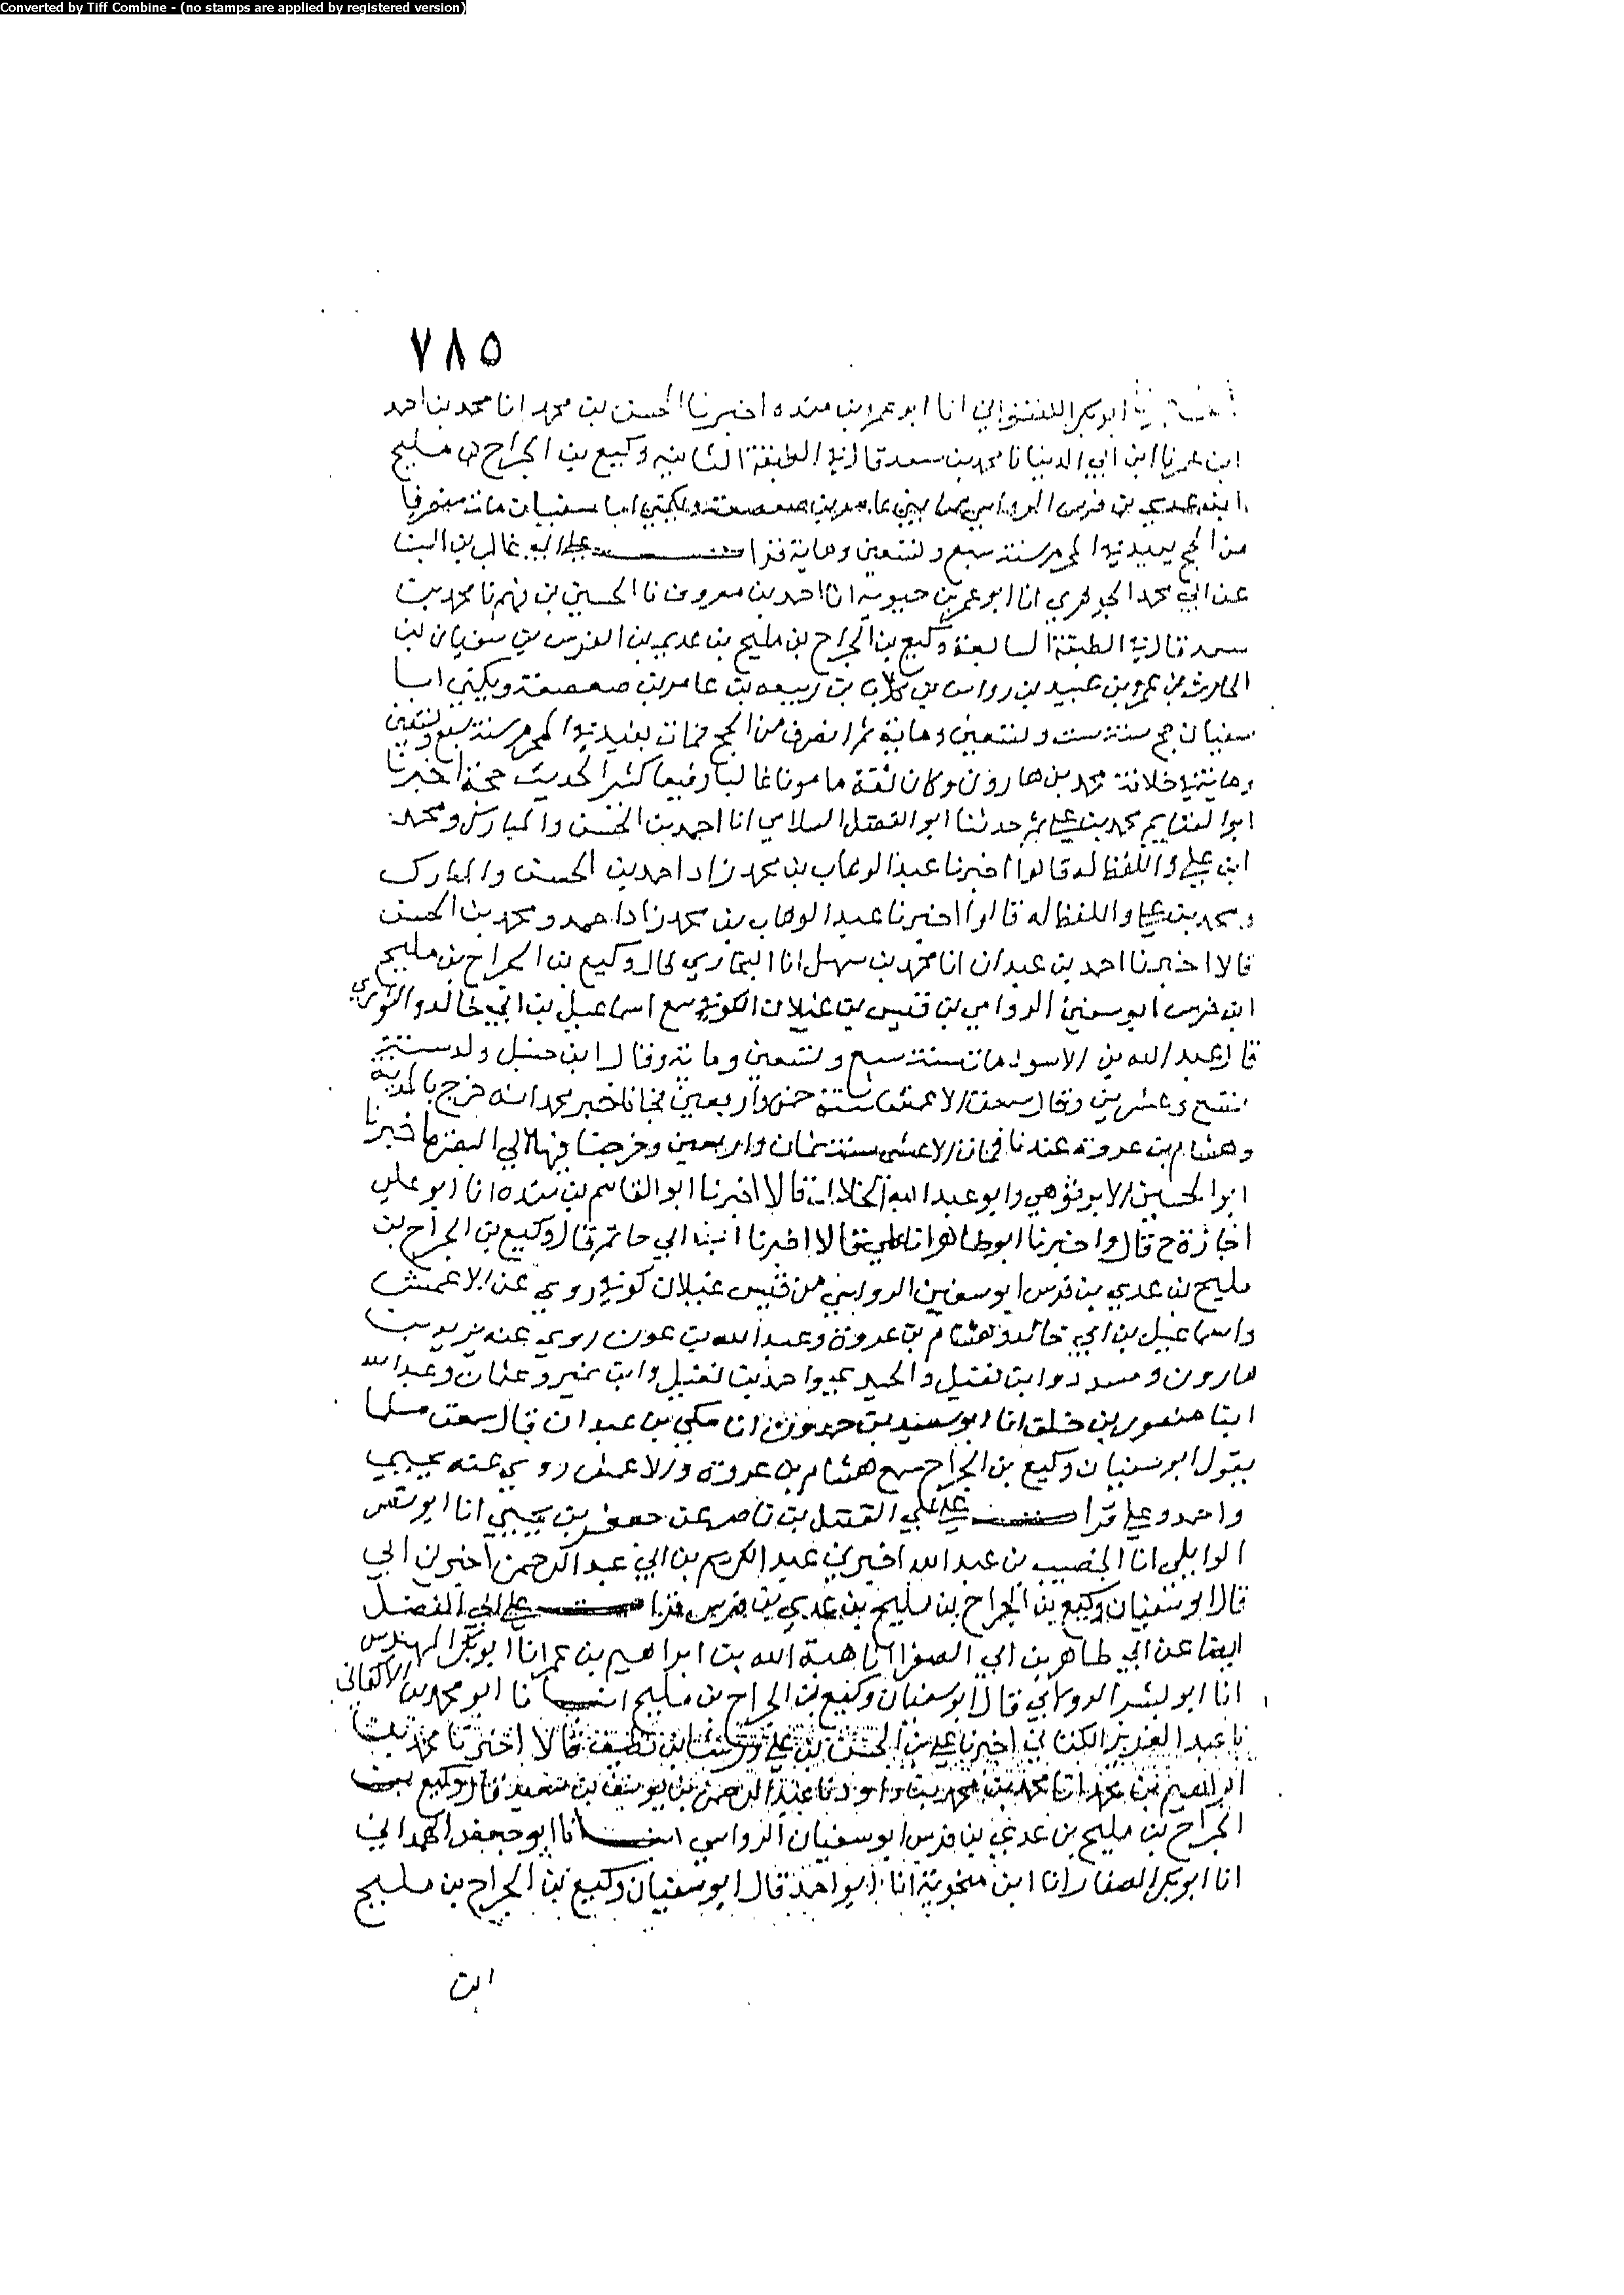 Converted by Tiff Combine - (no stamps are applied by registered version)
٧٨٥
ابو بكر اللفتواني انا ابو عمر بن منده اخبرنا الحسن بن محمد انا محمد بن احمد
ابن عمر نا ابن ابي الدنيا نا محمد بن سعد قال في الطبقة الثانيه وكيع بن الجراح بن مليح
ابن عدي بن فرس الرواسي بني عامر بن صعصعة ويكنى ابا سفيان مات منصرفا
من الحج بفيد في المحرم سنة سبع وتسعين وماية قرات على ابي غالب بن البنا
عن ابي محمد الجوهري انا ابو عمر بن حيوية انا احمد بن معروف نا الحسين بن فهم نا محمد بن
سعد قال في الطبقة السابعة وكيع بن الجراح بن مليح بن عدي بن الفرس بن سفيان بن
الحارث بن عمرو بن عبيد بن رواس بن كلاب بن ربيعه بن عامر بن صعصعة ويكنى ابا
سفيان حج سنة ست وتسعين وماية ثم انصرف من الحج فمات بفيد في المحرم سنة سبع وتسعين
وماية في خلافة محمد بن هارون وكان ثقة مامونا غالبا رفيعا كثير الحديث حجة اخبرنا
ابو الغنايم محمد بن علي ثم حدثنا ابو الفضل السلامي انا احمد بن الحسن والمبارك ومحمد
ابن علي واللفظ له قالوا اخبرنا عبد الوهاب بن محمد زاد احمد بن الحسن والمبارك
ومحمد بن علي واللفظ له قالوا اخبرنا عبد الوهاب بن محمد زاد احمد ومحمد بن الحسن
قالا اخبرنا احمد بن عبدان انا محمد بن سهل انا البخاري قال وكيع بن الجراح بن مليح
ابن فرس ابو سفين الرواسي بن قيس بن عيلان الكوفي سمع اسماعيل بن ابي خالد والثوري
قال عبد الله بن الاسود مات سنة سبع وتسعين وماية وقال ابن حنبل ولد سنة
تسع وعشرين وقال سمعت الاعمش سنة خمس واربعين فجانا خبر محمد انه خرج بالمدينة
وهشام بن عروة عندنا فمات الاعمش سنة ثمان واربعين وخرجنا فيها الى البصرة اخبرنا
ابو الحسين الابرقوهي وابو عبد الله الخلال قالا اخبرنا ابو القاسم بن منده انا ابو علي
اجازة ح قال واخبرنا ابو طاهر انا علي قالا اخبرنا ابن ابي حاتم قال وكيع بن الجراح بن
مليح بن عدي بن فرس ابو سفين الرواسي من قيس عيلان كوفي روى عن الاعمش
واسماعيل بن ابي خالد وهشام بن عروة وعبد الله بن عون روى عنه يزيد بن
هارون ومسدد وابن نفيل والحميدي واحمد بن نفيل وابن نمير وعثمان وعبد الله
ابنا منصور بن خلف انا ابو سعيد بن حمدون انا مكي بن عبدان قال سمعت مسلما
يقول ابو سفيان وكيع بن الجراح سمع هشام بن عروة والاعمش روى عنه يحيى
واحمد وعلي قرات على ابي الفضل بن ناصر عن جعفر بن يحيى انا ابو نصر
الوايلي انا الخصيب بن عبد الله اخبرني عبد الكريم بن ابي عبد الرحمن اخبرني ابي
قال ابو سفيان وكيع بن الجراح بن مليح بن عدي بن فرس قرات على ابي الفضل
ايضا عن ابي طاهر بن ابي الصقر انا هبة الله بن ابراهيم بن عمر انا ابو بكر المهندس
انا ابو بشر الدولابي قال ابو سفيان وكيع بن الجراح بن مليح انبانا ابو محمد بن الاكفاني
نا عبد العزيز الكناني اخبرنا علي بن الحسن بن علي ورشا بن نظيف قالا اخبرنا محمد بن
ابراهيم بن محمد انا محمد بن محمد بن داود نا عبد الرحمن بن يوسف بن سعيد قال وكيع بن
الجراح بن مليح بن عدي بن فرس ابو سفيان الرواسي انبانا ابو جعفر الهمداني
انا ابو بكر الصفار انا ابن منجوية انا ابو احمد قال ابو سفيان وكيع بن الجراح بن مليح
ابن